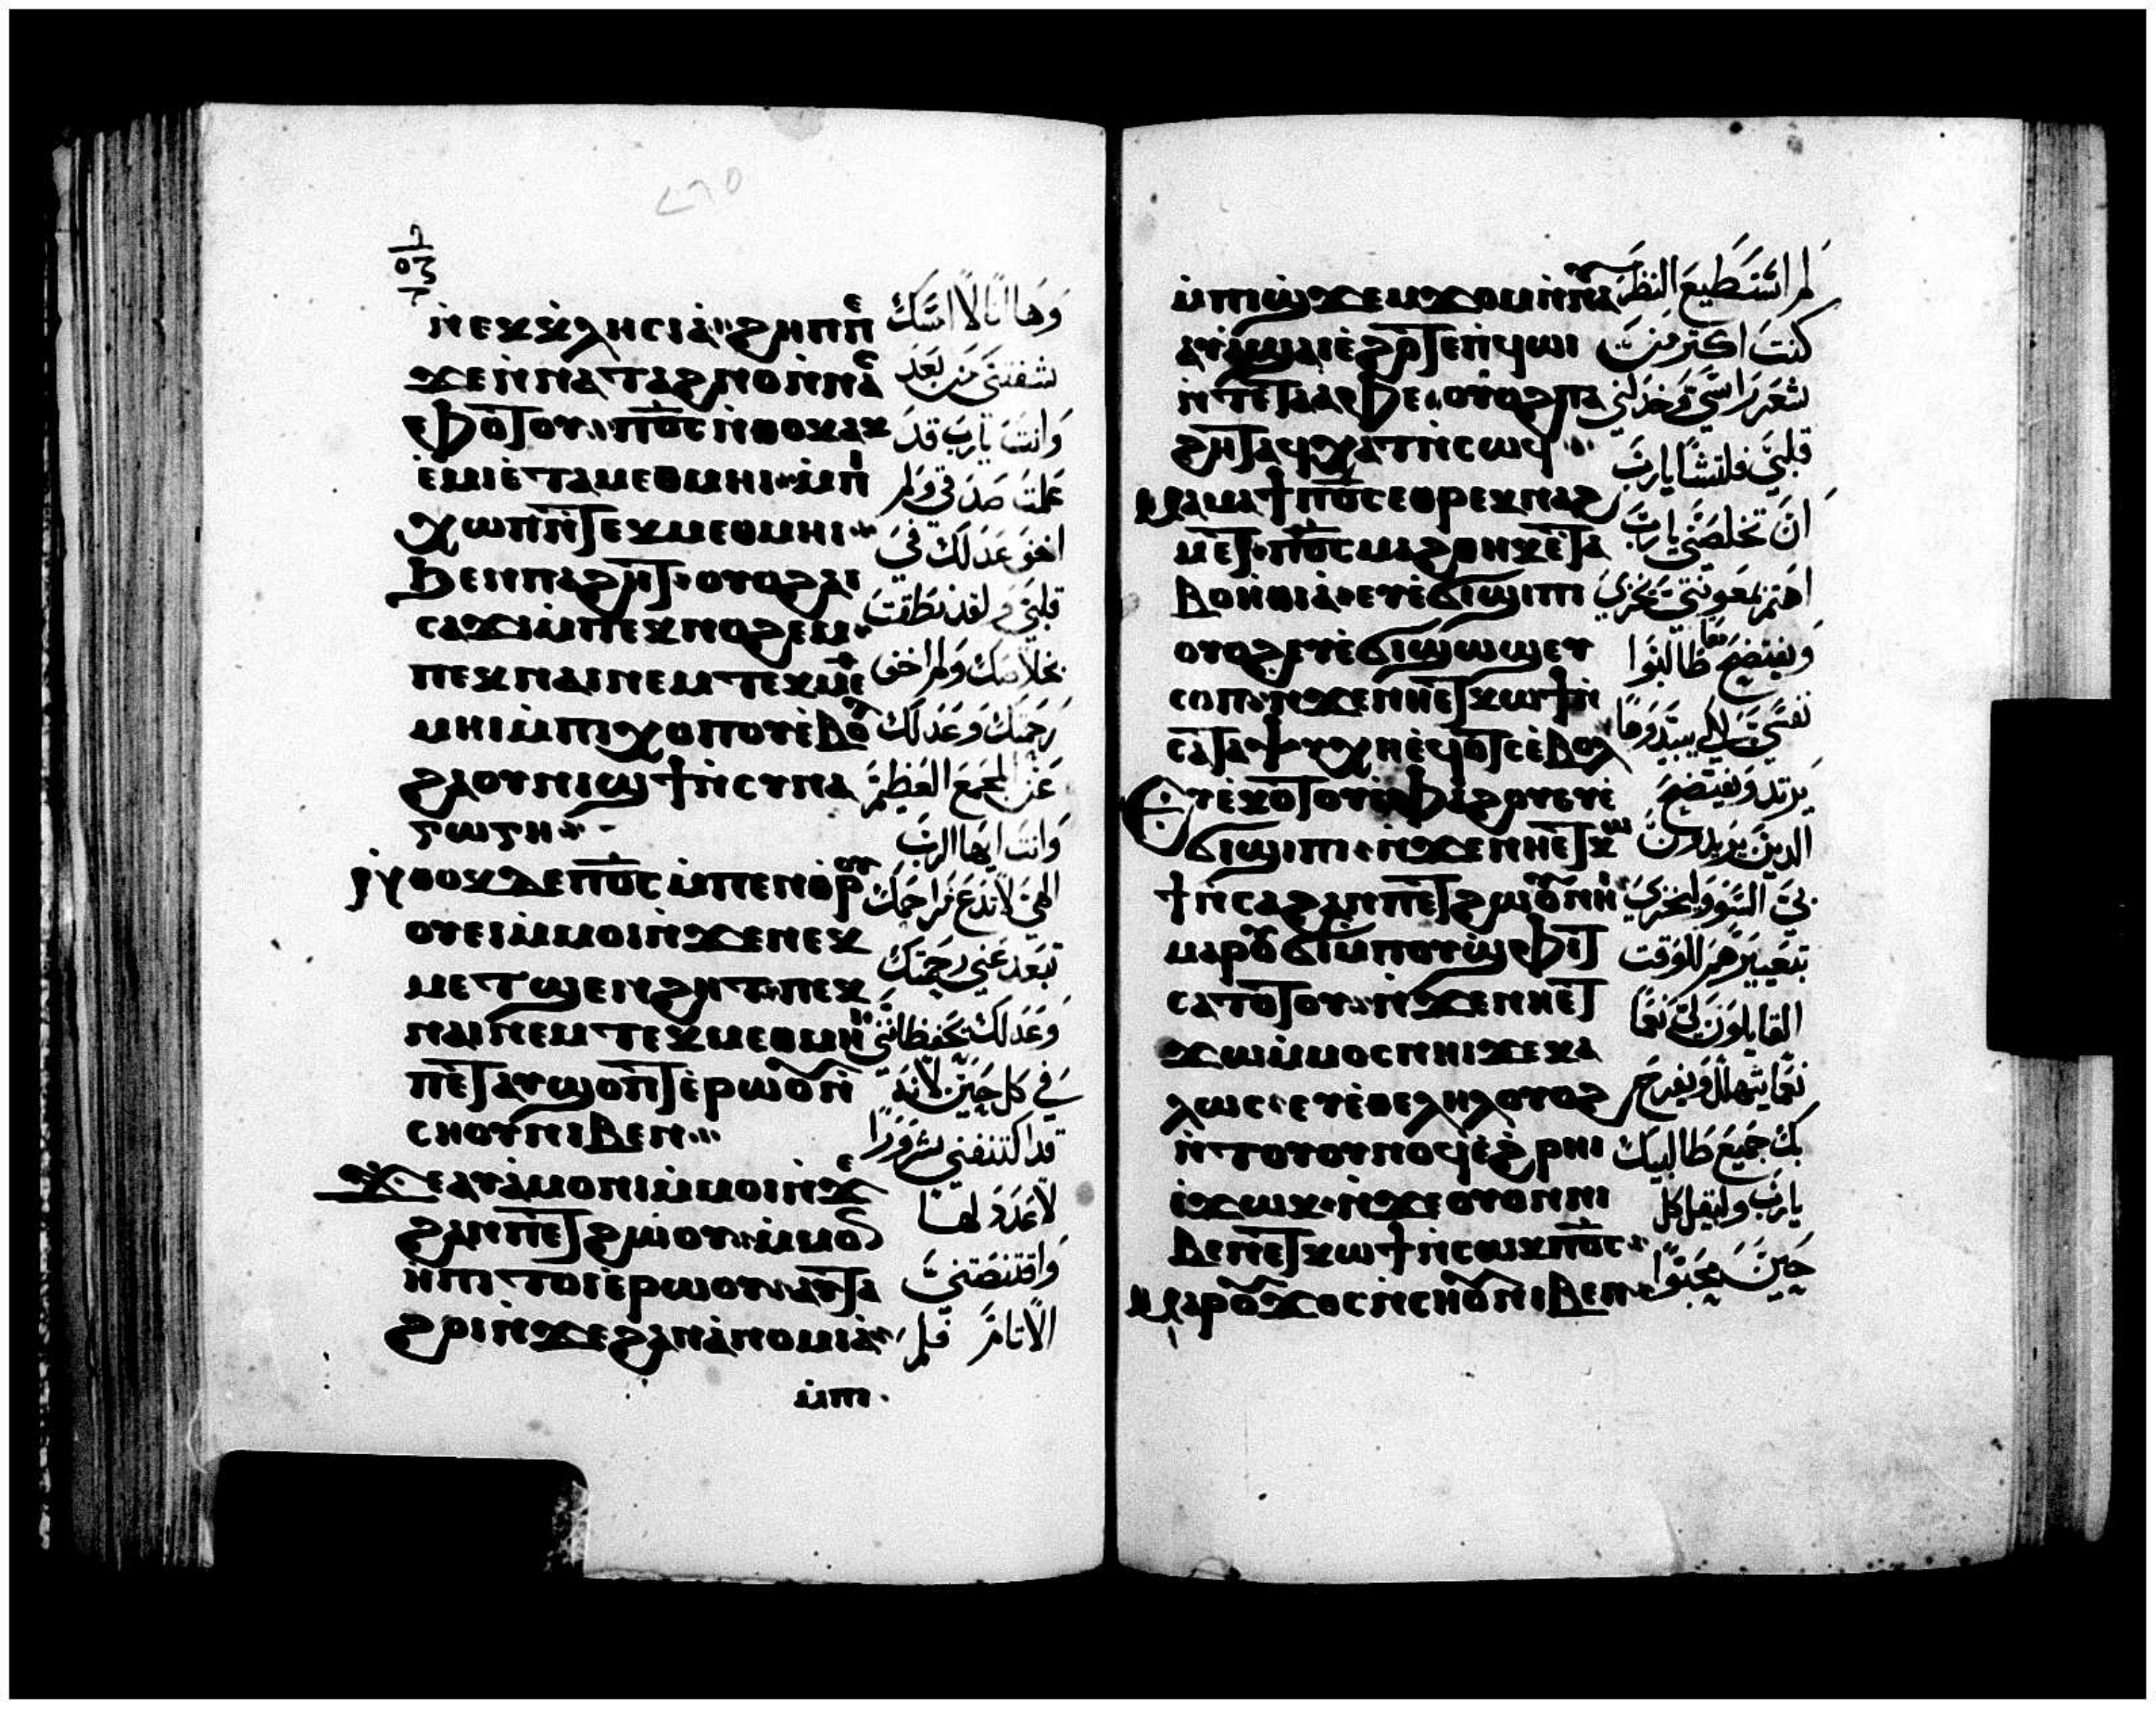 ⲛ̀ⲉⲕⲕ̀ⲗⲏⲥⲓⲁ̀ ϩⲏⲡⲡⲉ
ϫⲉⲛ̀ⲛⲁⲧⲁϩⲛⲟⲛ̀ⲛⲁ
ⲉⲃⲟⲧⲟⲩ ⲡ⳪ ⲛ̀ⲑⲟⲕⲁⲕ
ⲉ̀ⲙⲓⲉ̀ⲧⲁⲙⲉⲑⲙⲏⲓ ⲙ̀ⲡⲓ
ⲭⲱⲡⲛ̀ⲧⲉⲕⲙⲉⲑⲙⲏⲓ
ϧⲉⲛⲡⲁϩⲏⲧ ⲟⲩⲟϩⲁⲓ
ⲥⲁϫⲓⲙ̀ⲡⲉⲕⲛⲟϩⲉⲙ
ⲡⲉⲕⲛⲁⲓⲛⲉⲙⲧⲉⲕⲙⲉ
ⲙⲏⲓⲙ̀ⲡⲓⲭⲟⲡⲟⲩⲉ̀ⲃⲟ
ϩⲁⲟⲩⲛⲓϣϯⲛ̀ⲥⲩⲛⲁ
ⲅⲱⲅⲏ
ⲓⲅ ⲑⲟⲕⲇⲉⲡ⳪ ⲙ̀ⲡⲉⲛⲑⲣ
ⲟⲩⲉⲓⲙ̀ⲙⲟⲓⲛ̀ϫⲉⲛⲉⲕ
ⲙⲉⲧϣⲉⲛϩⲏⲧ ⲡⲉⲕ
ⲛⲁⲓⲛⲉⲙⲧⲉⲕⲙⲉⲑⲙⲏ
ⲡⲉⲧⲁⲩϣⲟⲡⲧⲉ̀ⲣⲱⲟⲩⲛ̀
ⲥⲏⲟⲩⲛⲓⲃⲉⲛ
ϫⲉⲁⲩⲁ̀ⲙⲟⲛⲓⲙ̀ⲙⲟⲓⲛ̀ϫⲉ
ϩⲁⲛⲡⲉⲧϩⲱⲟⲩ ⲙ̀ⲙⲟ
ⲏⲡⲓⲧⲟⲓⲉⲣⲱⲟⲩ ⲁⲩⲧⲁ
ϩⲟⲓⲛ̀ϫⲉϩⲁⲛⲁ̀ⲛⲟⲙⲓⲁ̀
ⲙ̀ⲡⲓ
وها انا لا امسك
شفتي من بعد
وانت يارب قد
علمت صدقي ولم
اخف عدلك في
قلبي ولقد نطقت
بخلاصك ولم اخف
رحمتك وعدلك
عن المجمع العظيم
وانت ايها الرب
الهي لا تدع مراحمك
تبعد عني رحمتك
وعدلك يحفظاني
في كل حين لانه
قد اكتنفني شرورا
لا عدد لها
واقتنصتني
الاثام فلم
ⲙ̀ⲡⲓϣϫⲉⲙϫⲟⲙⲛ̀ⲛⲁ
ⲁⲩⲁ̀ϣⲁⲓⲉ̀ϩⲟⲧⲉⲡⲓϥⲱⲓ
ⲛ̀ⲧⲉⲧⲁⲁⲫⲉ ⲟⲩⲟϩⲡⲁ
ϩⲏⲧⲁϥⲭⲁⲧⲛ̀ⲥⲱϥ
ⲙⲁⲙⲁϯⲡ⳪ ⲉⲑⲣⲉⲕⲛⲁϩ
ⲙⲉⲧ ⲡ⳪ ⲙⲁϩⲑⲏⲕⲉ̀ⲧⲁ
ⲃⲟⲏ̀ⲑⲓⲁ̀ ⲉⲩⲉ̀ϭⲓϣⲓⲡⲓ
ⲟⲩⲟϩⲉⲩⲉ̀ϭⲓϣⲱϣⲉⲩ
ⲥⲟⲡ ⲛ̀ϫⲉⲛⲏⲉⲧⲕⲱϯⲛ̀
ⲥⲁⲧⲁⲯⲩⲭⲏⲉ̀ϥⲟⲧⲥⲉ̀ⲃⲟⲗ
ⲉⲩⲉ̀ⲕⲟⲧⲟⲩⲉ̀ⲫⲁϩⲟⲩⲉⲩⲉ̀
ϭⲓϣⲓⲡⲓ ⲛ̀ϫⲉⲛⲏⲉⲧⲕⲱ
ϯⲛ̀ⲥⲁϩⲁⲛⲡⲉⲧϩⲱⲟⲩⲛⲏⲓ
ⲙⲁⲣⲟⲩϭⲓⲙ̀ⲡⲟⲩϣⲫⲓⲧ
ⲥⲁⲧⲟⲧⲟⲩ ⲛ̀ϫⲉⲛⲏⲉⲧ
ϫⲱⲙ̀ⲙⲟⲥⲛⲏⲓϫⲉⲕⲁ
ⲗⲱⲥ ⲉⲩⲉ̀ⲑⲉⲗⲏⲗⲟⲩⲟϩ
ⲛ̀ⲧⲟⲩⲟⲩⲛⲟϥⲉ̀ϩⲣⲏⲓ
ⲉ̀ϫⲱⲕ ⲛ̀ϫⲉⲟⲩⲟⲛⲛⲓ
ⲃⲉⲛⲉⲧⲕⲱϯⲛ̀ⲥⲱⲕⲡ⳪
ⲙⲁⲣⲟⲩϫⲟⲥⲛ̀ⲥⲏⲟⲩⲛⲓⲃⲉⲛ
لم استطيع النظر
كنت اكثر من
شعر راسي وخذلني
قلبي فلتشا يارب
ان تخلصني يارب
اهتم بمعونتي يخزي
ويفتضح معا طالبوا
نفسي لكي يبيدوها
يرتد ويفتضح
الذين يريدون
بي السوء وليخزي
بتعييرهم للوقت
القايلون لي نعما
نعما يتهلل ويفرح
بك جميع طالبيك
يارب وليقل كل
حين محبوا